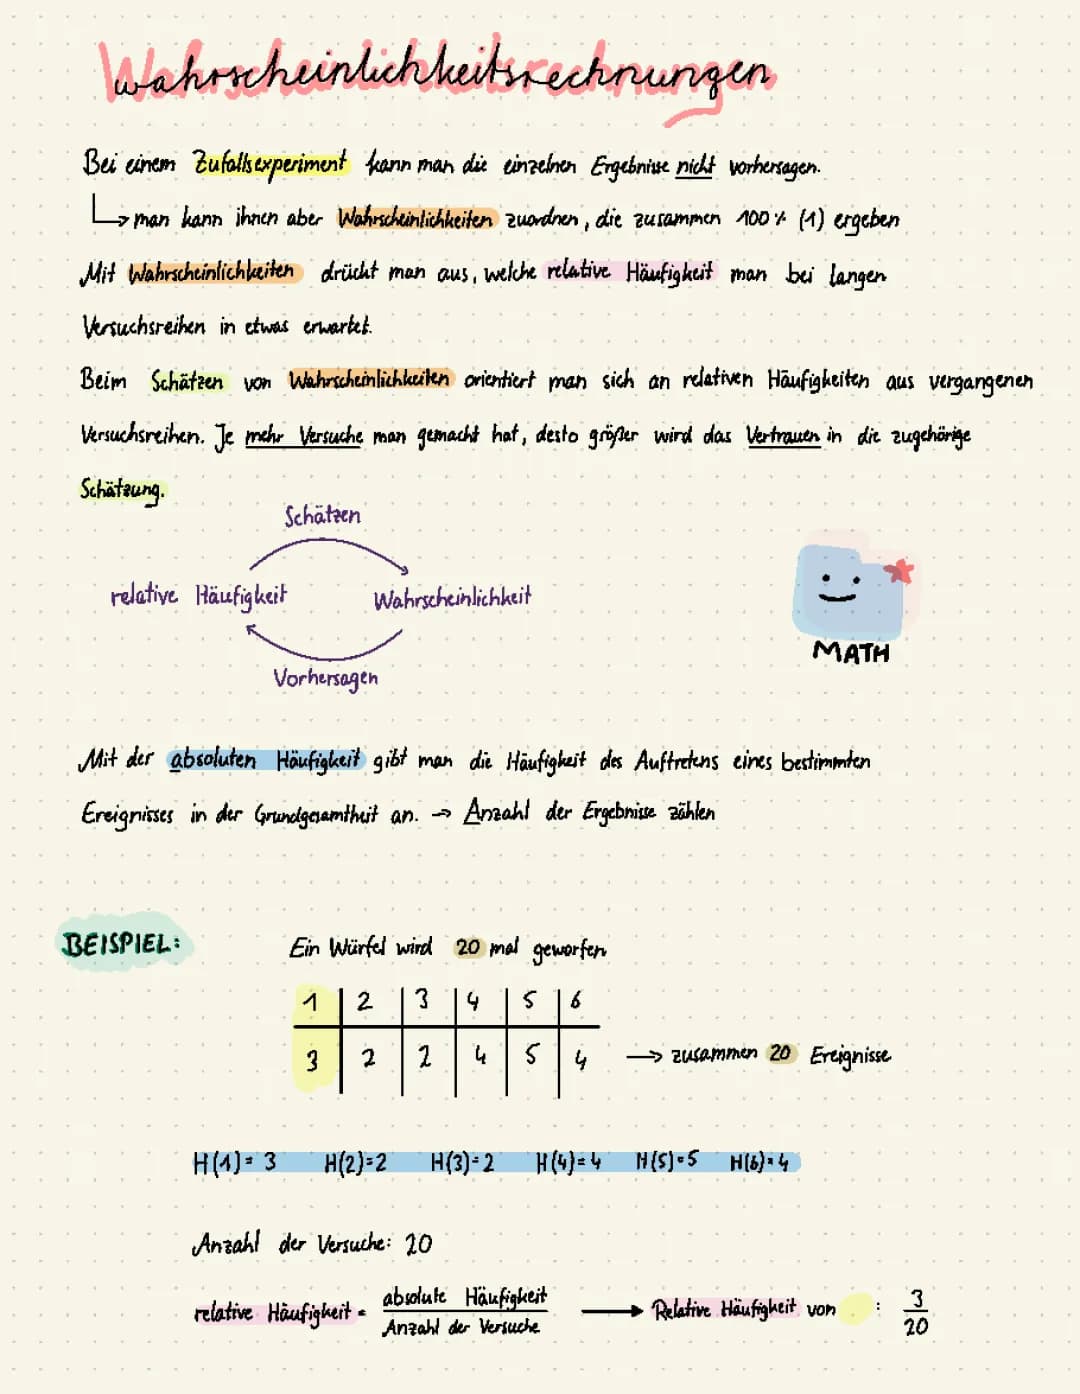 Wahrscheinlichkeitsrechnungen
Bei einem Zufallsexperiment kann man die einzelnen Ergebnisse nicht vorhersagen.
↳ man kann ihnen aber Wahrscheinlichkeiten zuordnen, die zusammen 100% (1) ergeben
Mit Wahrscheinlichkeiten drückt man aus, welche relative Häufigkeit man bei langen
Versuchsreihen in etwas erwartet.
Beim Schätzen von Wahrscheinlichkeiten orientiert man sich an relativen Häufigkeiten aus vergangenen
Versuchsreihen. Je mehr Versuche man gemacht hat, desto größer wird das Vertrauen in die zugehörige
Schätzung.
Schätzen
relative Häufigkeit Wahrscheinlichkeit
Vorhersagen
MATH
Mit der absoluten Häufigkeit gibt man die Häufigkeit des Auftretens eines bestimmten
Ereignisses in der Grundgesamtheit an. → Anzahl der Ergebnisse zählen
BEISPIEL: Ein Würfel wird 20 mal geworfen
1 2 3 4 5 6
3 2 2 4 5 4 → zusammen 20 Ereignisse
H(1)=3 H(2)=2 H(3)=2 H(4)=4 H(5)=5 H(6)=4
Anzahl der Versuche: 20
relative Häufigkeit = absolute Häufigkeit / Anzahl der Versuche → Relative Häufigkeit von : 3/20